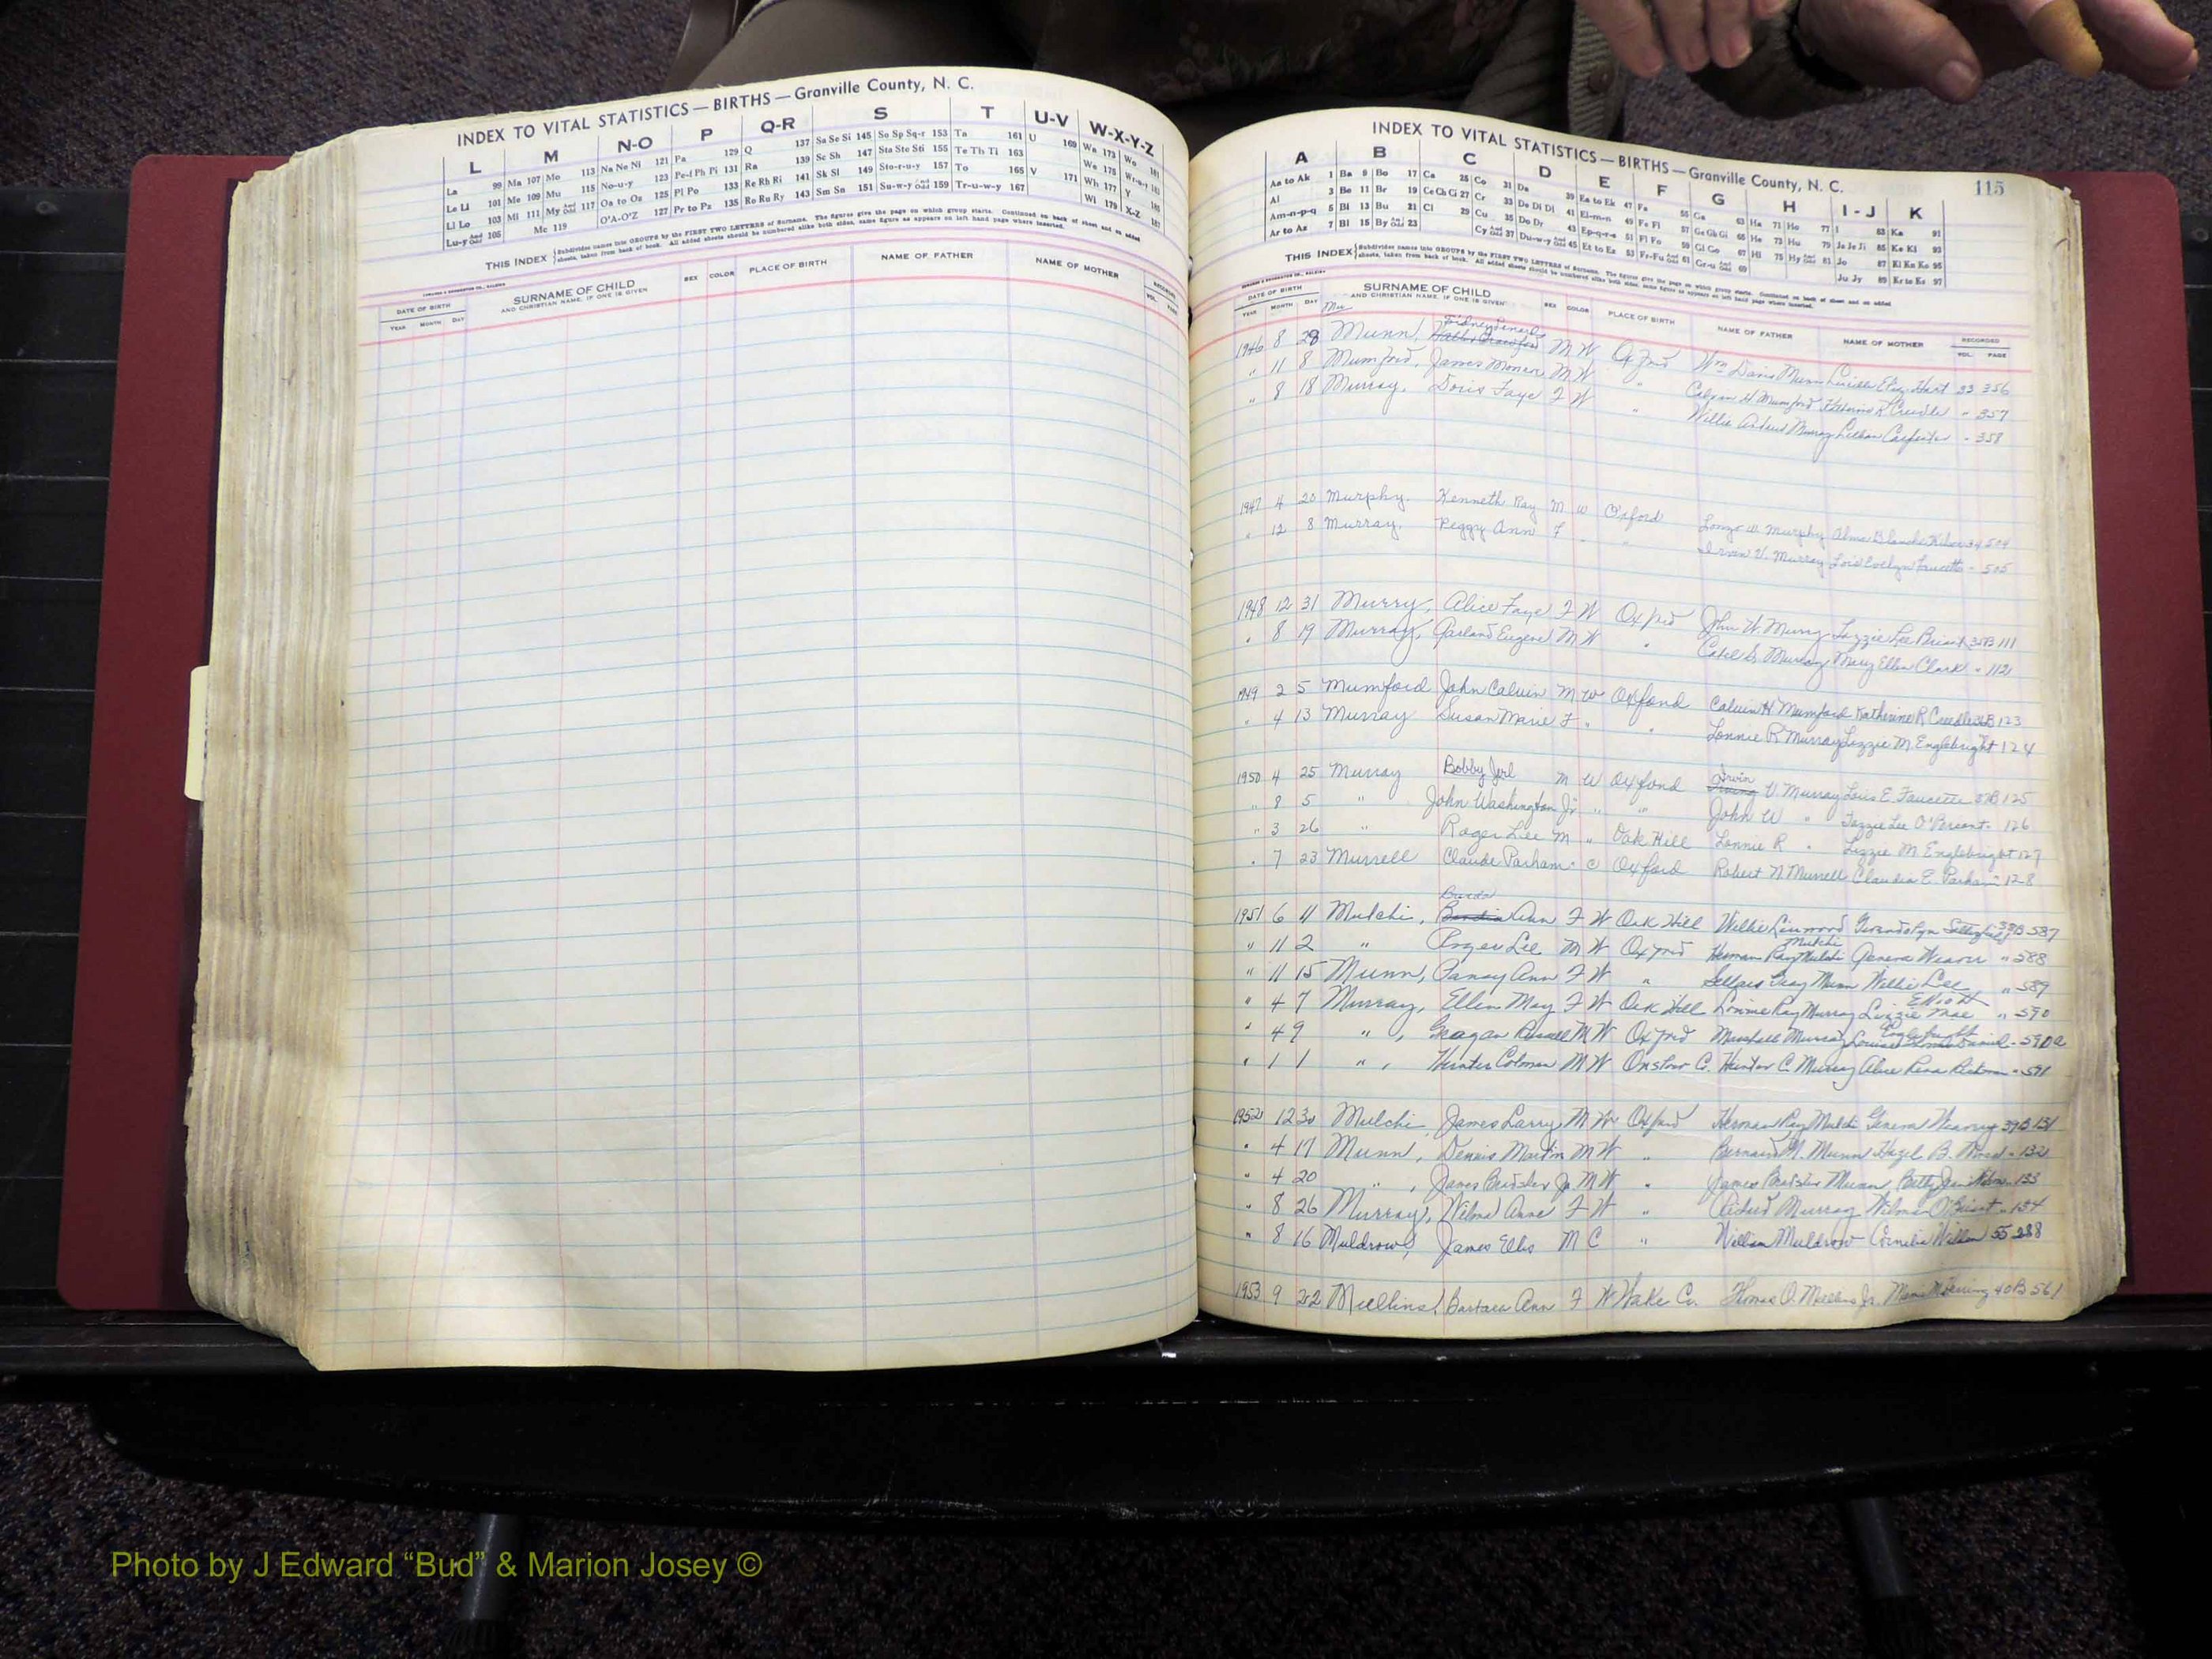 INDEX TO VITAL STATISTICS — BIRTHS — Granville County, N. C.
L M N-O P Q-R S T U-V W-X-Y-Z
La 99 Ma 107 Mo 113 Na Ne Ni 121 Pa 129 Q 137 Sa Se Si 145 So Sp Sq-r 153 Ta 161 U 169 Wa 173 Wo 181
Le Li 101 Me 109 Mu 115 No-u-y 123 Pe-f Ph Pi 131 Ra 139 Sc Sh 147 Sta Ste Sti 155 Te Th Ti 163 We 175
Ll Lo 103 Mi 111 My And Odd 117 Oa to Oz 125 Pl Po 133 Re Rh Ri 141 Sk Sl 149 Sto-r-u-y 157 To 165 V 171 Wh 177 Y 185
Lu-y And Odd 105 Mc 119 O'A-O'Z 127 Pr to Pz 135 Ro Ru Ry 143 Sm Sn 151 Su-w-y And Odd 159 Tr-u-w-y 167 Wi 179 X-Z 187
THIS INDEX Subdivides names into GROUPS by the FIRST TWO LETTERS of Surname. The figures give the page on which group starts. Continued on back of sheet and on added
sheets, taken from back of book. All added sheets should be numbered alike both sides, same figure as appears on left hand page where inserted.
DATE OF BIRTH
YEAR MONTH DAY
SURNAME OF CHILD
AND CHRISTIAN NAME, IF ONE IS GIVEN
SEX COLOR PLACE OF BIRTH NAME OF FATHER NAME OF MOTHER
RECORDED
VOL. PAGE
INDEX TO VITAL STATISTICS — BIRTHS — Granville County, N. C.
115
A B C D E F G H I - J K
Aa to Ak 1 Ba 9 Bo 17 Ca 25 Co 31 Da 39 Ea to Ek 47 Fa 55 Ga 63 Ha 71 Ho 77 I 83 Ka 91
Al 3 Be 11 Br 19 Ce Ch Ci 27 Cr 33 De Di Dj 41 El-m-n 49 Fe Fi 57 Ge Gh Gi 65 He 73 Hu 79 Ja Je Ji 85 Ke Kl 93
Am-n-p-q 5 Bi 13 Bu 21 Cl 29 Cu 35 Do Dr 43 Ep-q-r-s 51 Fl Fo 59 Gl Go 67 Hi 75 Hy And Odd 81 Jo 87 Ki Kn Ko 95
Ar to Az 7 Bl 15 By And Odd 23 Cy And Odd 37 Du-w-y And Odd 45 Et to Ez 53 Fr-Fu And Odd 61 Gr-u And Odd 69 Ju Jy 89 Kr to Kz 97
THIS INDEX Subdivides names into GROUPS by the FIRST TWO LETTERS of Surname. The figures give the page on which group starts. Continued on back of sheet and on added
sheets, taken from back of book. All added sheets should be numbered alike both sides, same figure as appears on left hand page where inserted.
DATE OF BIRTH
YEAR MONTH DAY
SURNAME OF CHILD
AND CHRISTIAN NAME, IF ONE IS GIVEN
SEX COLOR PLACE OF BIRTH NAME OF FATHER NAME OF MOTHER
RECORDED
VOL. PAGE
Mu
1946 8 28 Munn, Sidney M W Oxford Wm Davis Munn Lucille Eliz. Hart 33 356
" 11 8 Mumford, James Monroe M W " Calvin H Mumford Katherine R Creedle " 357
" 8 18 Murray, Doris Faye F W " Willie Andrew Murray Lillian Carpenter " 358
1947 4 20 Murphy, Kenneth Ray M W Oxford Lonzo W Murphy Alma Blanche 34 504
" 12 8 Murray, Peggy Ann F " " Irvin V. Murray Lois Evelyn Faucette " 505
1948 12 31 Murry, Alice Faye F W Oxford John W. Murry Lizzie Lee Briant 35B 111
" 8 19 Murray, Garland Eugene M W " Murray Mary Ellen Clark " 112
1949 2 5 Mumford John Calvin M W Oxford Calvin H Mumford Katherine R Creedle 36B 123
" 4 13 Murray Susan Marie F " " Lonnie R Murray Lizzie M Englebright 124
1950 4 25 Murray Bobby Joel M W Oxford Irvin V Murray Lois E Faucette 37B 125
" 8 5 " John Washington Jr " " John W " Lizzie Lee O'Briant 126
" 3 26 " Roger Lee M " Oak Hill Lonnie R " Lizzie M Englebright 127
" 7 23 Murrell Claude Parham " C Oxford Robert N Murrell Claudia E. Parham 128
1951 6 11 Mulchi, Ann F W Oak Hill Willie Linwood Gwendolyn 38B 587
" 11 2 " Roger Lee M W Oxford Herman Ray Mulchi Geneva Weaver " 588
" 11 15 Munn, Pansy Ann F W " Gray Munn Willie Lee Elliott " 589
" 4 7 Murray, Ellen May F W Oak Hill Lonnie Ray Murray Lizzie Mae " 590
" 4 9 ", Russell M W Oxford Marshall Murray Louise Daniel " 590a
" 1 1 ", Hunter Coleman M W Onslow C. Hunter C. Murray Alice Rena " 591
1952 12 30 Mulchi, James Larry M W Oxford Herman Ray Mulchi Geneva Weaver 39B 131
" 4 17 Munn, Dennis Martin M W " Bernard M. Munn Hazel B. " 132
" 4 20 ", James Jr. M W " James Munn Betty Jean " 133
" 8 26 Murray, Wilma Anne F W " Murray Wilma O'Briant " 134
" 8 16 Muldrow, James Ellis M C " William Muldrow Cornelia 55 288
1953 9 22 Mullins, Barbara Ann F W Wake Co. Thomas O. Mullins Jr. 40B 561
Photo by J Edward “Bud” & Marion Josey ©